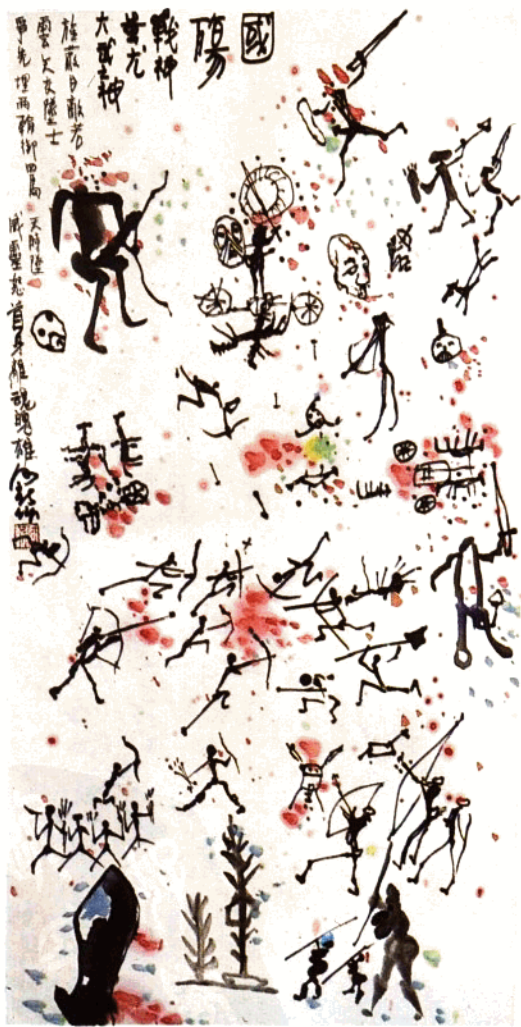 國
殤
戰神
蚩尤
大之神
旌蔽日敵若
雲矢交墜士
爭先埋兩輪四馬 天時墜
威靈怒首身離魂魄雄